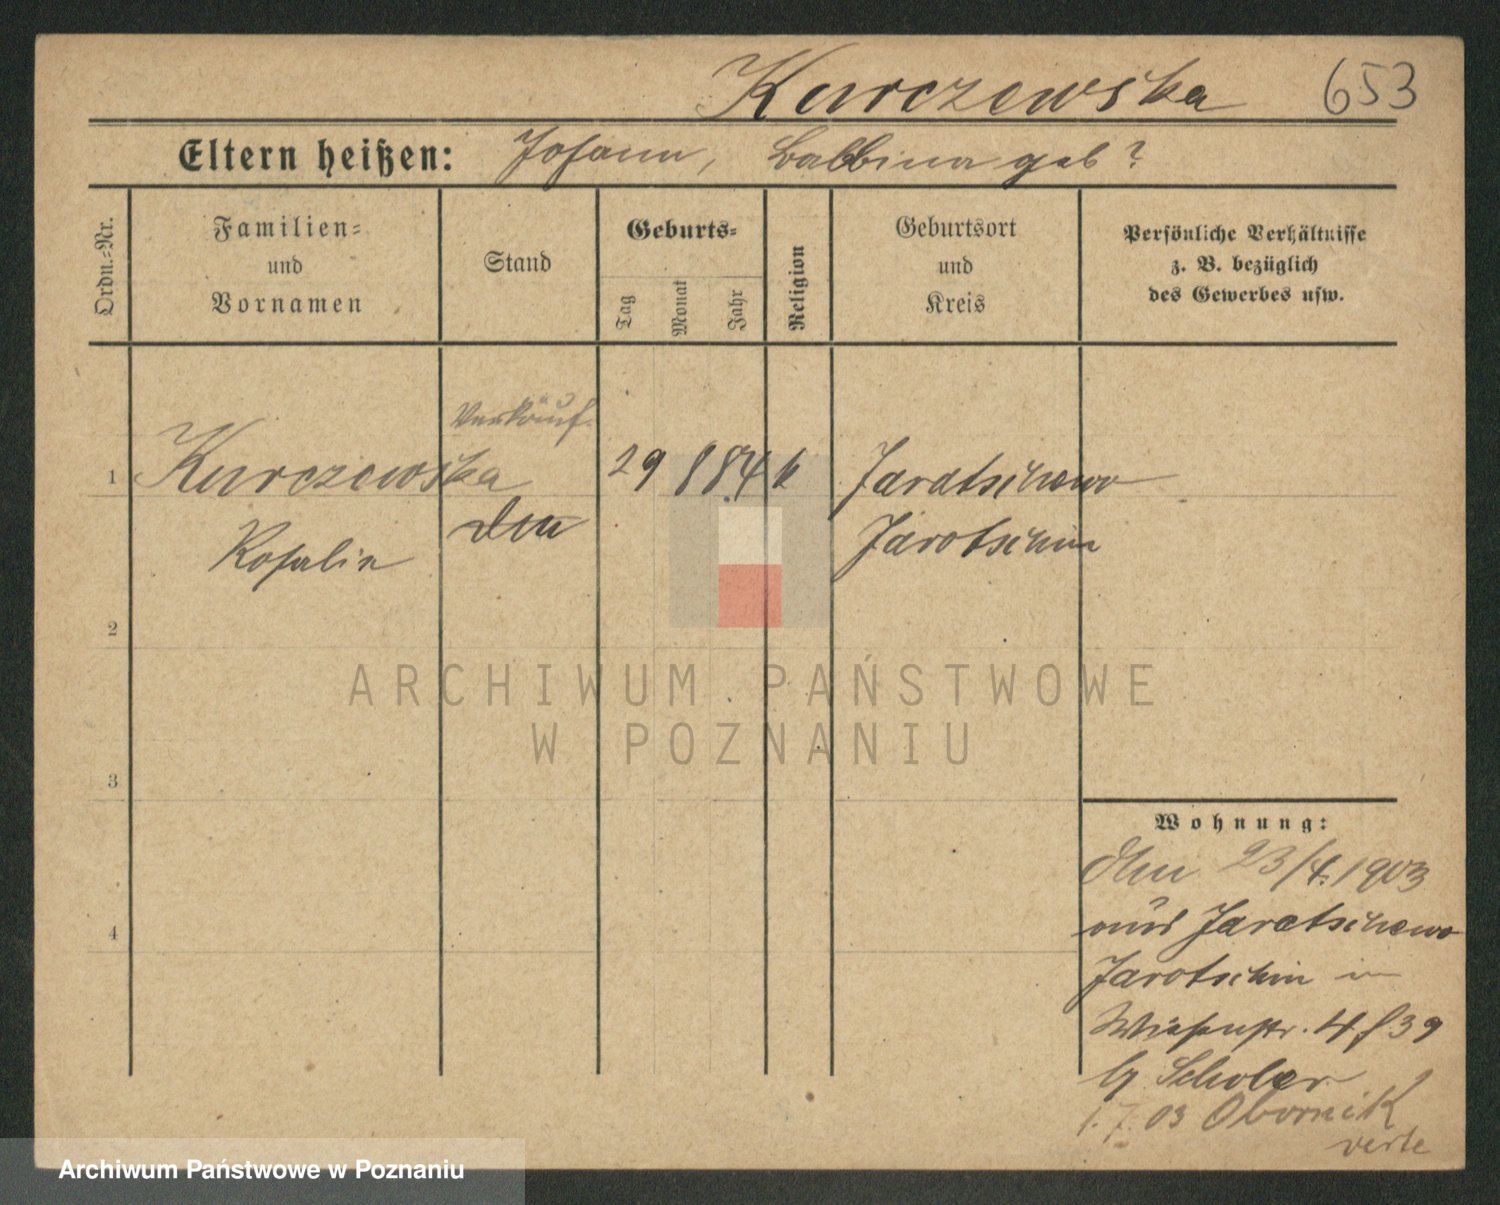 Kurczewska 653
Eltern heißen: Johann, Balbina geb?
Ordn.-Nr.
Familien-
und
Vornamen
Stand
Geburts-
Tag
Monat
Jahr
Religion
Geburtsort
und
Kreis
Persönliche Verhältnisse
z. B. bezüglich
des Gewerbes usw.
Verkäuf.
1 Kurczewska 29 8 84 k Jaratschewo
Rosalie Jarotschin
2
3
4
Wohnung:
23/4. 1903
aus Jaratschewo
Jarotschin in
Wiesenstr. 4
b/ Scholer
1.7.03 Obornik
verte
ARCHIWUM PAŃSTWOWE
W POZNANIU
Archiwum Państwowe w Poznaniu